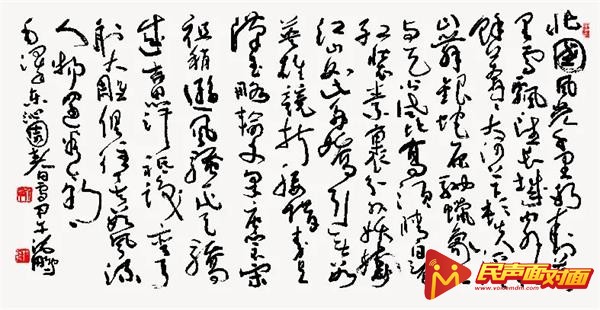 北國風光千里冰封萬
里雪飘望长城内外惟
餘莽莽大河上下顿失滔滔
山舞银蛇原驰蜡象欲
与天公试比高须晴日看
红装素裹分外妖娆
江山如此多娇引无数
英雄竞折腰惜秦皇
漢武略输文采唐宗宋
祖稍逊风骚一代天骄
成吉思汗只識弯弓
射大雕俱往矣数风流
人物还看今朝
毛泽东沁園春雪
民声面对面